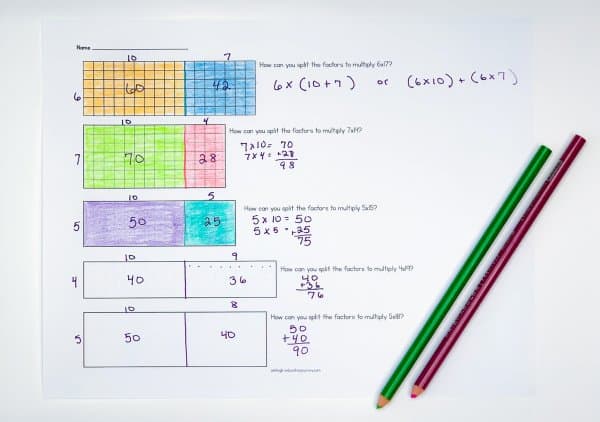 Name
10 7
How can you split the factors to multiply 6x17?
6 60 42 6 x (10 + 7) or (6x10) + (6x7)
10 4
How can you split the factors to multiply 7x14?
7 70 28
7x10= 70
7x4 = +28
98
10 5
How can you split the factors to multiply 5x15?
5 50 25
5 x 10 = 50
5 x 5 = +25
75
10 9
How can you split the factors to multiply 4x19?
4 40 36
40
+36
76
10 8
How can you split the factors to multiply 5x18?
5 50 40
50
+40
90